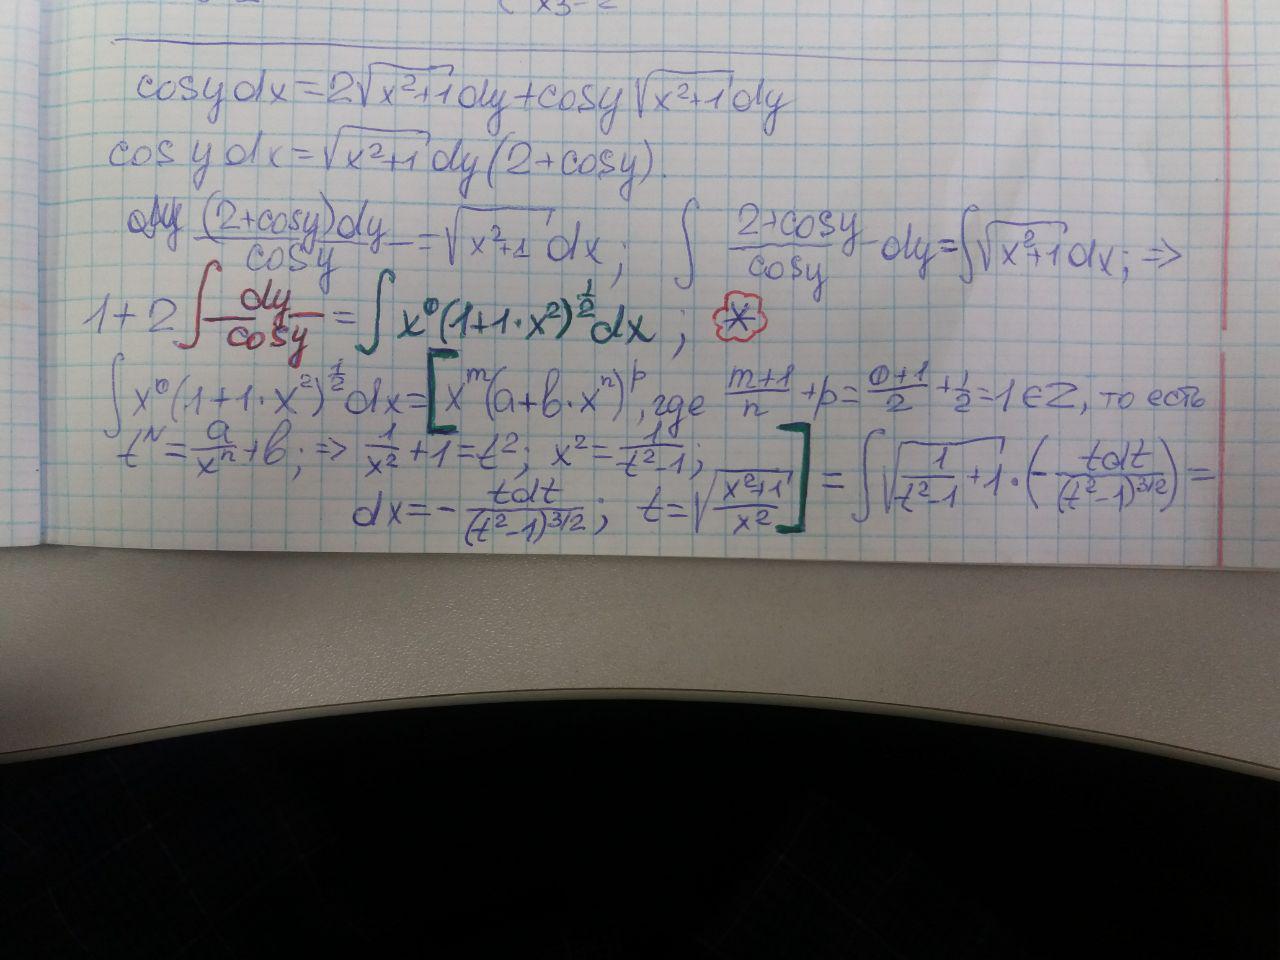 cosydx=2√(x²+1)dy+cosy√(x²+1)dy
cosydx=√(x²+1)dy(2+cosy).
(2+cosy)dy/cosy=√(x²+1)dx; ∫(2+cosy)/cosy dy=∫√(x²+1)dx; ⇒
1+2∫dy/cosy=∫x⁰(1+1·x²)^(1/2)dx; *
∫x⁰(1+1·x²)^(1/2)dx=[x^m(a+b·x^n)^p, где (m+1)/n+p=(0+1)/2+1/2=1∈Z, то есть
t^N=a/x^n+b; ⇒ 1/x²+1=t²; x²=1/(t²-1);
dx=-tdt/(t²-1)^(3/2); t=√((x²+1)/x²)]=∫√(1/(t²-1)+1)·(-tdt/(t²-1)^(3/2))=